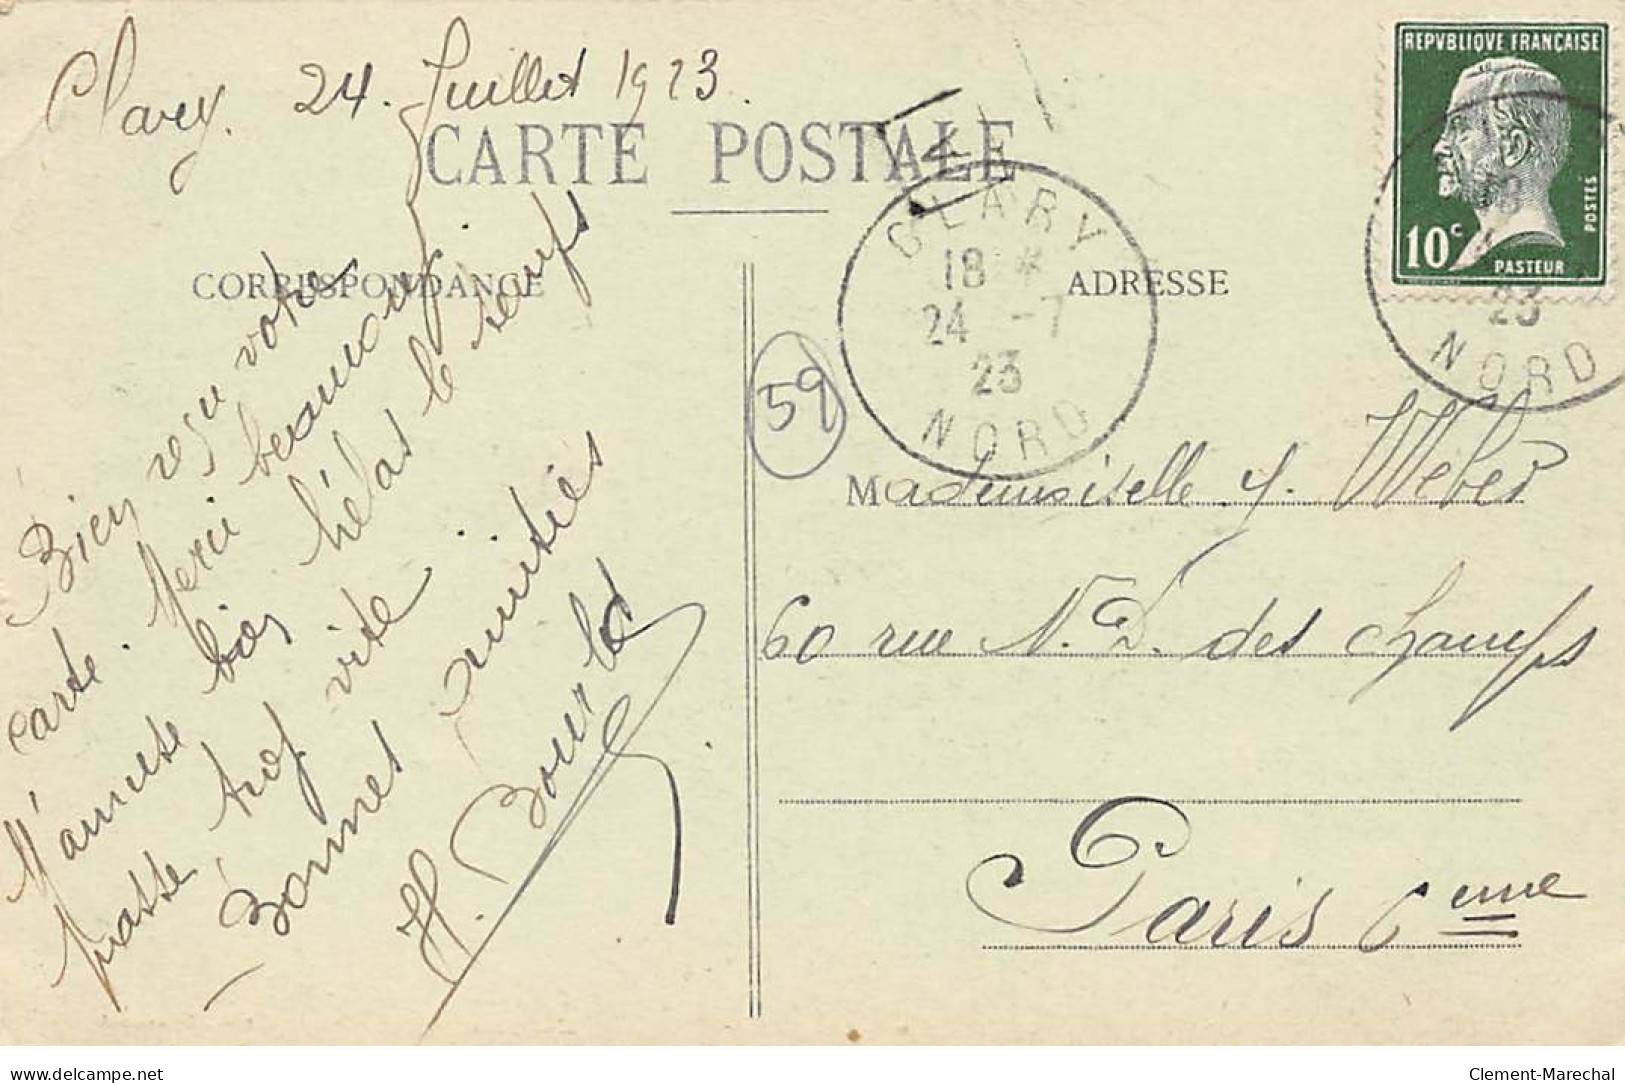 Clary. 24. Juillet 1923.
CARTE POSTALE
CORRESPONDANCE
ADRESSE
Bien reçu votre
carte. Merci beaucoup.
M'amuse bien hélas le temps
passe trop vite
Bonnes amitiés
H. Bourlet
59
CLARY
18 *
24 -7
23
NORD
REPVBLIQVE FRANÇAISE
10c
POSTES
PASTEUR
23
NORD
Mademoiselle Y. Weber
60 rue N.D. des Champs
Paris 6eme
www.delcampe.net
Clement-Marechal